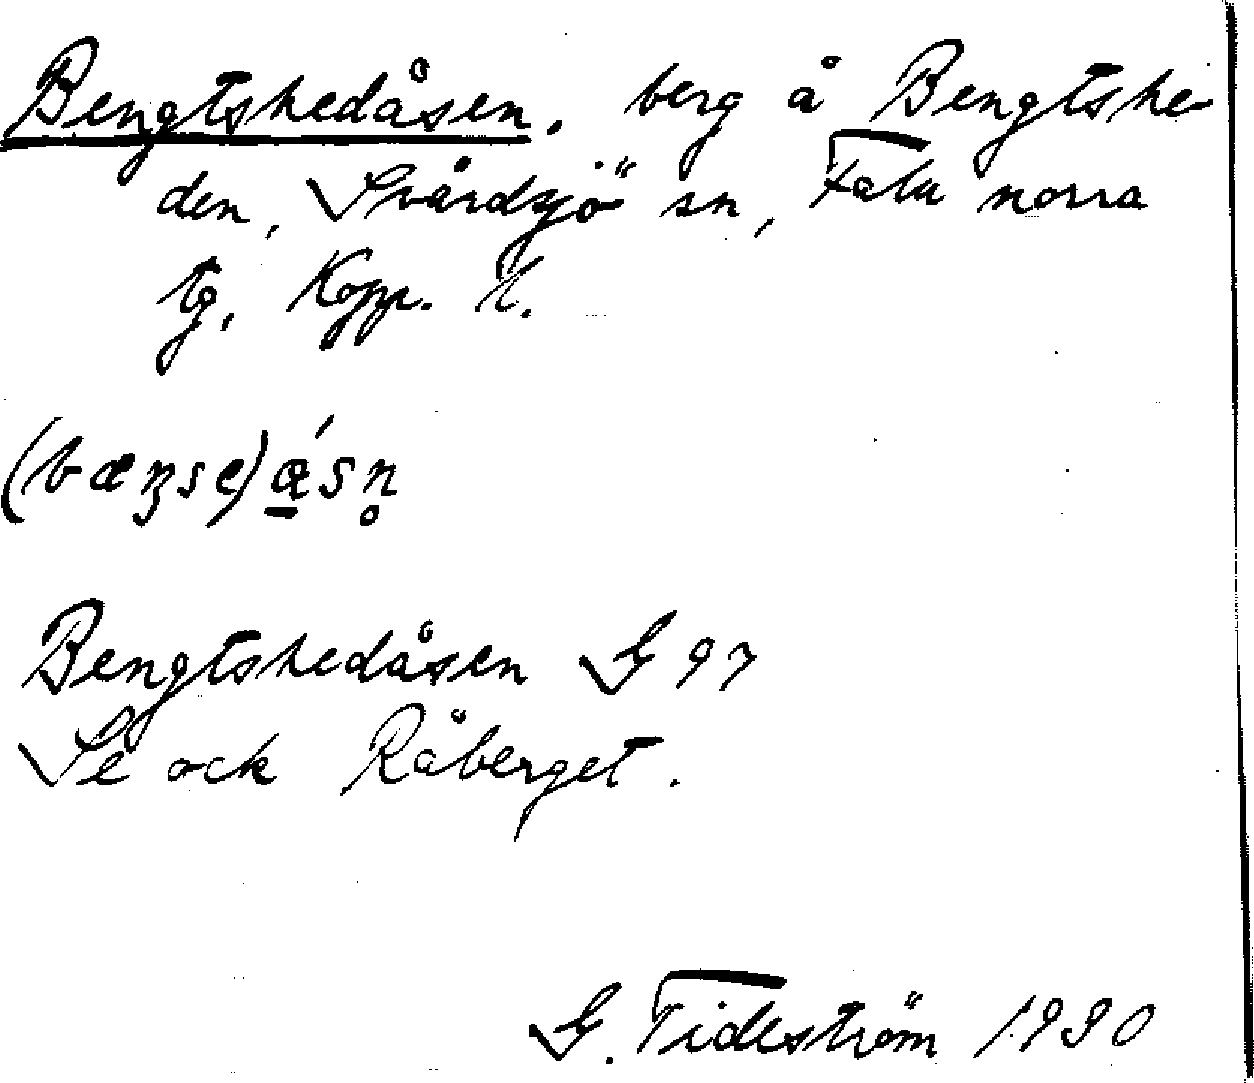 Bengtshedåsen, berg å Bengtshe-
den, Svärdsjö sn, Falu norra
tg, Kopp. l.
(bæŋse)ǻsn̥
Bengtshedåsen G 97
Se ock Råberget.
G. Tideström 1930